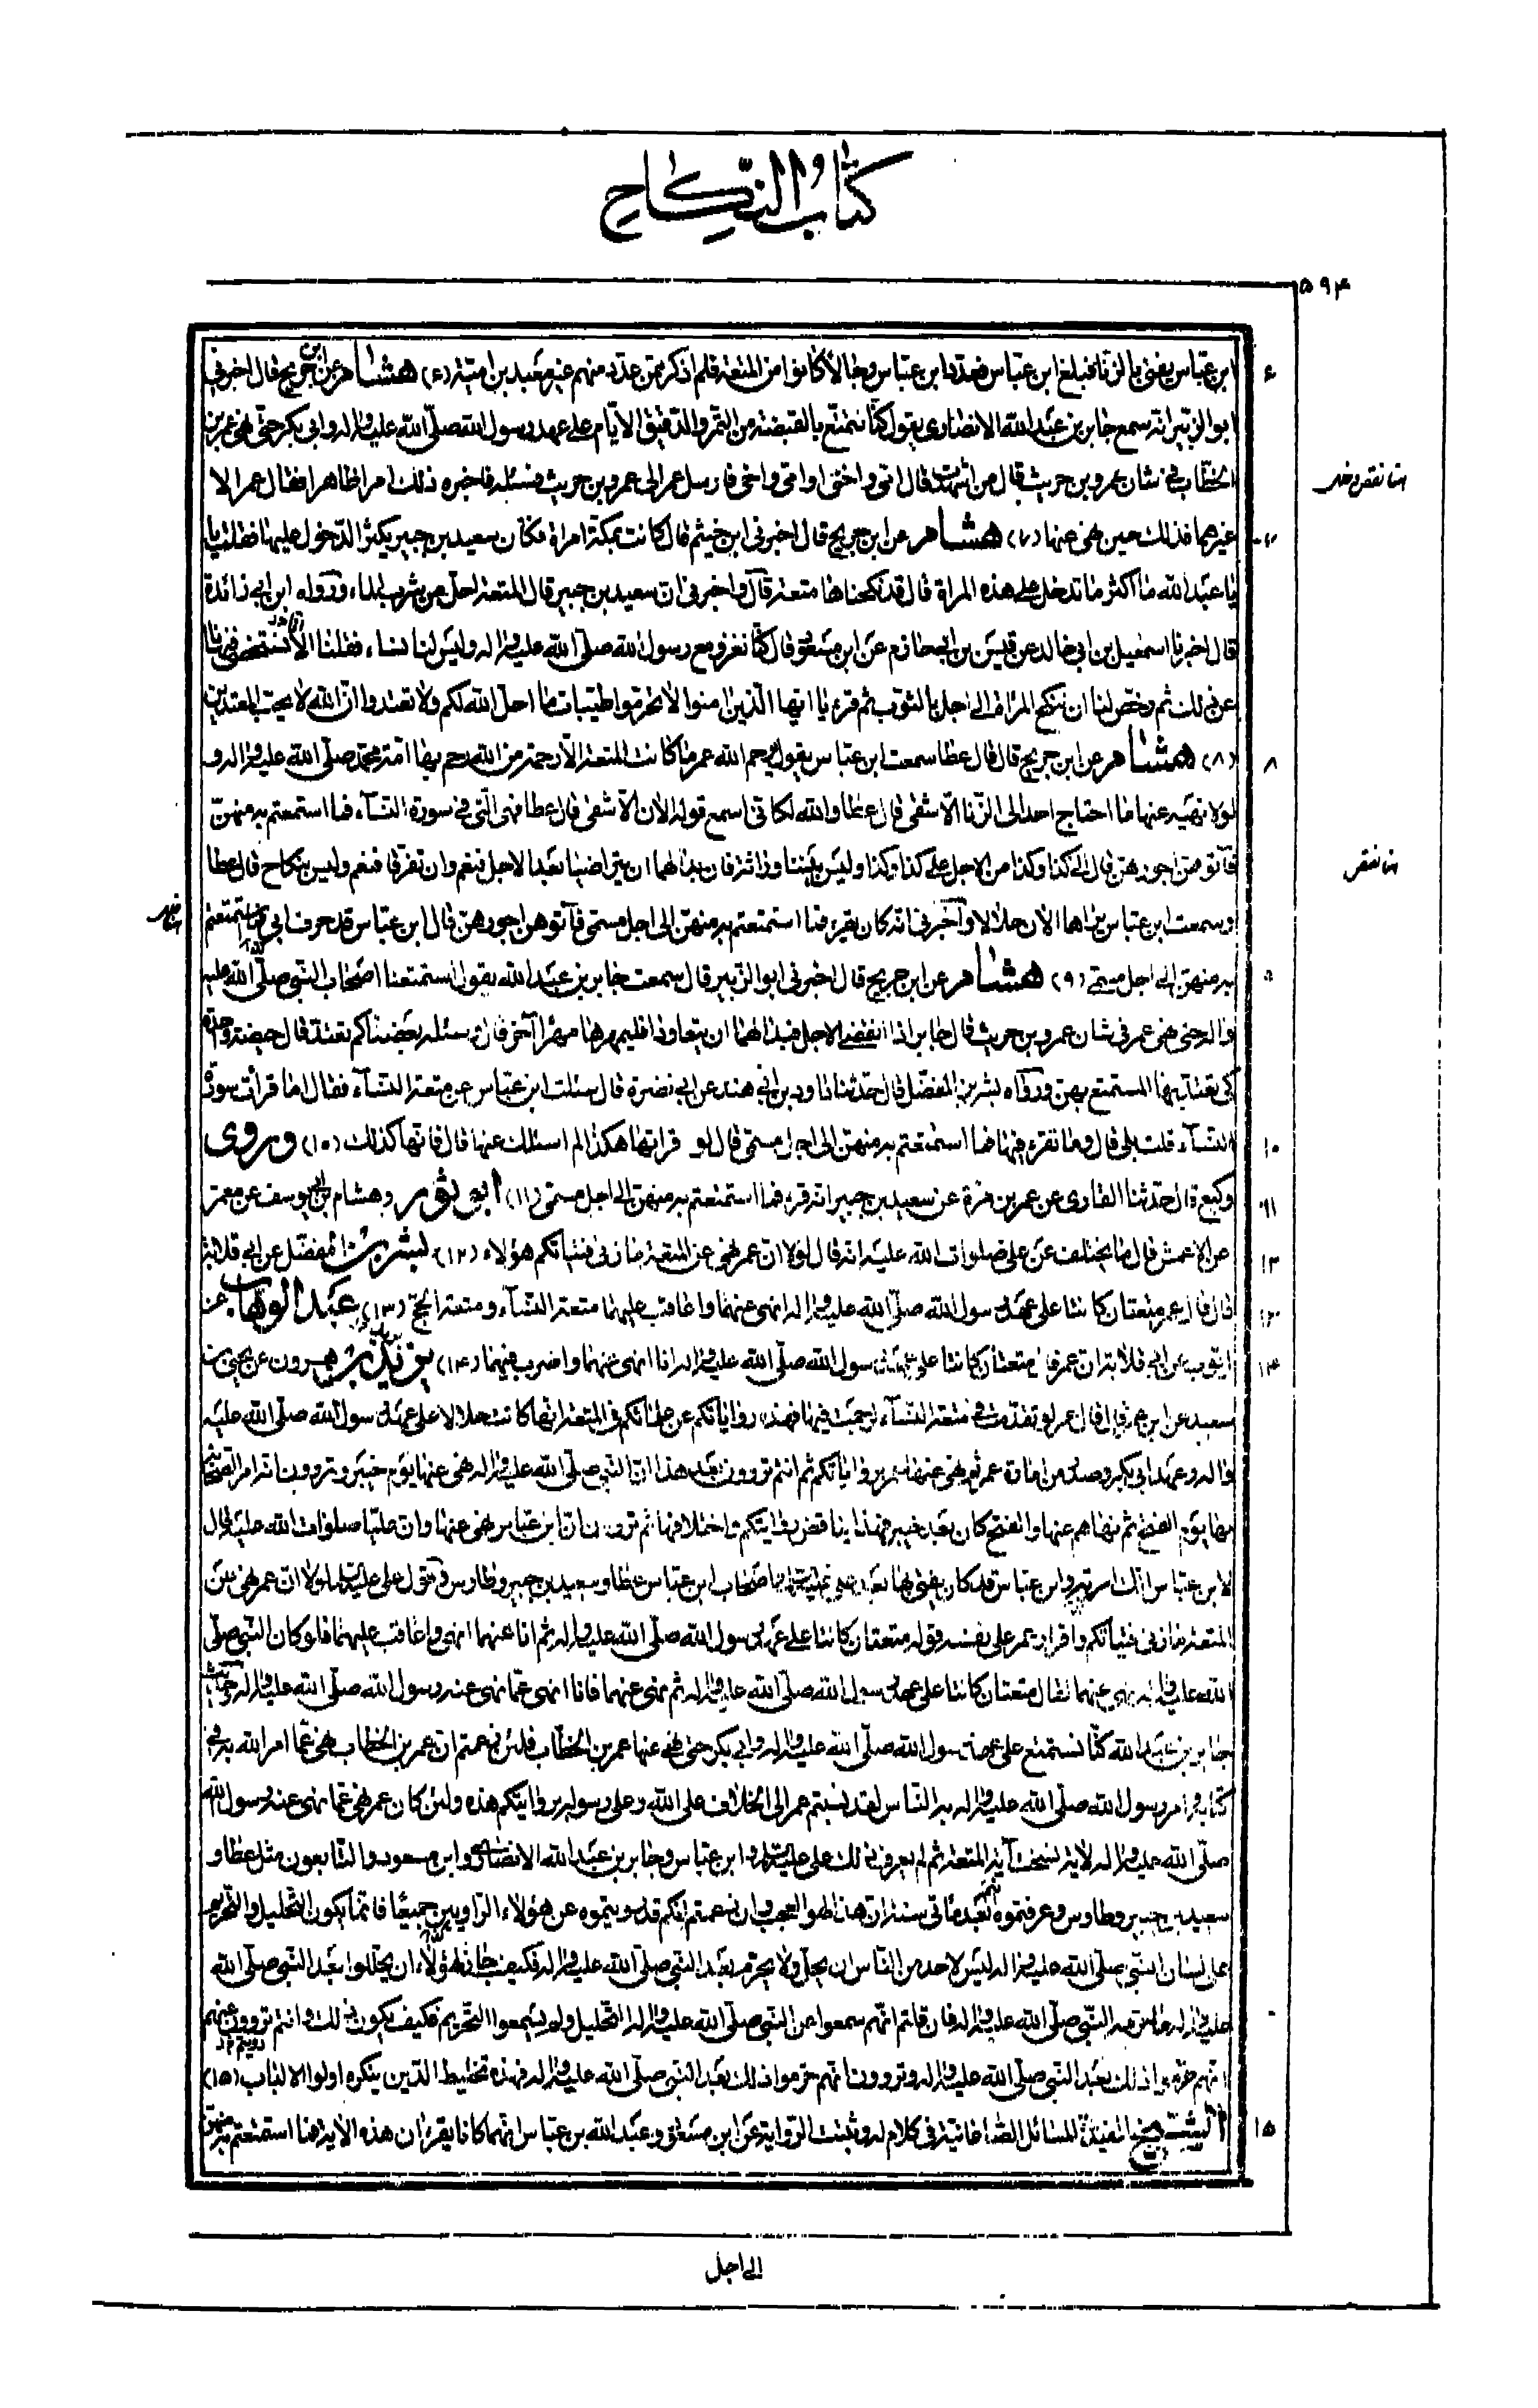 كتاب النكاح
۵۹۴
ابن عباس يفتى بالزنا فبلغ ابن عباس فعد ابن عباس رجالا كانوا من المتعة فلم اذكر ممن عدد منهم غير معبد بن امية (٤) هشام عن ابن جريج قال اخبرنى
ابو الزبير انه سمع جابر بن عبد الله الانصارى يقول كنا نتمتع بالقبضة من التمر والدقيق الايام على عهد رسول الله صلى الله عليه واله وابى بكر حتى نهى عمر بن
الخطاب فى شان عمرو بن حريث قال من اشهدت قال امى واختى او امى واخى فارسل عمر الى عمرو بن حريث فسئله فاخبره ذلك امرا ظاهرا فقال عمر الا
غيرهما فذلك حين نهى عنها (٧) هشام عن ابن جريج قال اخبرنى ابن خيثم قال كانت بمكة امراة فكان سعيد بن جبير يكثر الدخول عليها فقلت يا
يا عبد الله ما اكثر ما تدخل على هذه المراة قال قد نكحناها متعة قال واخبرنى ان سعيد بن جبير قال المتعة احل من شرب الماء ورواه ابن ابى زائدة
قال اخبرنا اسمعيل بن ابى خالد عن قيس بن ابى حازم عن ابن مسعود قال كنا نغزو مع رسول الله صلى الله عليه واله وليس لنا نساء فقلنا الا نستخصى فنهانا
عن ذلك ثم رخص لنا ان ننكح المراة الى اجل بالثوب ثم قرء يا ايها الذين امنوا لا تحرموا طيبات ما احل الله لكم ولا تعتدوا ان الله لا يحب المعتدين
(٨) هشام عن ابن جريج قال قال عطا سمعت ابن عباس يقول يرحم الله عمر ما كانت المتعة الا رحمة من الله رحم بها امة محمد صلى الله عليه واله و
لولا نهيه عنها ما احتاج احد الى الزنا الا شفى قال عطا والله لكانى اسمع قوله الان الا شفى قال عطا فهى التى فى سورة النسآء فما استمتعتم به منهن
فآتوهن اجورهن قال الى كذا وكذا من الاجل على كذا وكذا وليس بينهما وراثة فان بدا لهما ان يتراضيا بعد الاجل فنعم وان تفرقا فنعم وليس بنكاح قال عطا
وسمعت ابن عباس يراها الان حلالا واخبرنى انه كان يقرء فما استمتعتم به منهن الى اجل مسمى فآتوهن اجورهن قال ابن عباس فى حرف ابى فما استمتعتم
به منهن الى اجل مسمى (٩) هشام عن ابن جريج قال اخبرنى ابو الزبير قال سمعت جابر بن عبد الله يقول استمتعنا اصحاب النبى صلى الله عليه
واله حتى نهى عمر فى شان عمرو بن حريث قال جابر اذا انقضى الاجل فبدا لهما ان يتعاودا فليمهرها مهرا آخر قال وسئله بعضنا كم تعتد قال حيضة واحدة
كن تعتدنها المستمتع بهن ورواه بشر بن المفضل قال حدثنا داود بن ابى هند عن ابى نضرة قال سئلت ابن عباس عن متعة النسآء فقال اما قرات سورة
النسآء قلت بلى قال وما تقرء فيها فما استمتعتم به منهن الى اجل مسمى قال لو قراتها هكذا لم اسئلك عنها قال فانها كذلك (١٠) وروى
وكيع قال حدثنا القارى عن عمر بن مرة عن سعيد بن جبير انه قرء فما استمتعتم به منهن الى اجل مسمى (١١) ابو ثور وهشام بن يوسف عن معمر
عن الاعمش قال ما يختلف عن على صلوات الله عليه انه قال لولا ان عمر نهى عن المتعة ما زنى فتيانكم هؤلاء (١٢) بشر بن المفضل عن ابى قلابة
قال قال عمر متعتان كانتا على عهد رسول الله صلى الله عليه واله انهى عنهما واعاقب عليهما متعة النسآء ومتعة الحج (١٣) عبد الوهاب عن
ايوب عن ابى قلابة ان عمر قال متعتان كانتا على عهد رسول الله صلى الله عليه واله انا انهى عنهما واضرب فيهما (١٤) يزيد بن هرون عن يحيى بن
سعيد عن ابن عمر قال قال عمر لو تقدمت فى متعة النسآء لرجمت فيها فهذه رواياتكم عن علمائكم فى المتعة انها كانت حلالا على عهد رسول الله صلى الله عليه
واله وعهد ابى بكر وصدر من امارة عمر ثم نهى عنها عمر برواياتكم ثم انتم تروون بعد هذا ان النبى صلى الله عليه واله نهى عنها يوم خيبر وتروون انه امر اصحابه
بها يوم الفتح ثم نهاهم عنها والفتح كان بعد خيبر فهذا يناقض روايتكم واختلافها ثم تروون ان ابن عباس نهى عنها وان عليا صلوات الله عليه قال
لابن عباس انك امرؤ وابن عباس قد كان يفتى بها بعد على عليه‌السلم واصحاب ابن عباس عطا وسعيد بن جبير وطاوس وقول على عليه‌السلم لولا ان عمر نهى عن
المتعة ما زنى فتيانكم واقرار عمر على نفسه قوله متعتان كانتا على عهد رسول الله صلى الله عليه واله ثم انا عنهما انهى واعاقب عليهما فلو كان النبى صلى
الله عليه واله نهى عنهما لقال متعتان كانتا على عهد رسول الله صلى الله عليه واله ثم نهى عنهما فانا انهى عما نهى عنه رسول الله صلى الله عليه واله وحديث
جابر بن عبد الله كنا نستمتع على عهد رسول الله صلى الله عليه واله وابى بكر حتى نهى عنها عمر بن الخطاب فلئن زعمتم ان عمر بن الخطاب نهى عما امر الله به فى
كتابه وامر رسول الله صلى الله عليه واله به الناس لقد نسبتم عمر الى الخلاف على الله وعلى رسوله بروايتكم هذه ولئن كان عمر نهى عما نهى عنه رسول الله
صلى الله عليه واله لاية نسخت آية المتعة ثم لم يعرف ذلك على عليه‌السلم وابن عباس وجابر بن عبد الله الانصارى وابن مسعود والتابعون مثل عطا و
سعيد بن جبير وطاوس وعرفتموه انتم بعد مأتى سنة ان هذا لهو العجب وان زعمتم انكم قد رويتموه عن هؤلاء الراويين جميعا فانما يكون التحليل والتحريم
على لسان النبى صلى الله عليه واله ليس لاحد من الناس ان يحل ولا يحرم بعد النبى صلى الله عليه واله فكيف جاز لهؤلاء ان يحللوا بعد النبى صلى الله
عليه واله ما حرمه النبى صلى الله عليه واله فان قلتم انهم سمعوا من النبى صلى الله عليه واله التحليل ولم يسمعوا التحريم فكيف يكون ذلك وانتم تروون عنهم
انهم حرموا ذلك بعد النبى صلى الله عليه واله وتروون انهم حرموا ذلك بعد النبى صلى الله عليه واله فهذه تخليط الذين ينكره اولوا الالباب (١٥)
الشيخ المفيد فى المسائل الصاغانية فى كلام له وثبت الرواية عن ابن مسعود وعبد الله بن عباس انهما كانا يقرءان هذه الاية فما استمتعتم به منهن
الى اجل